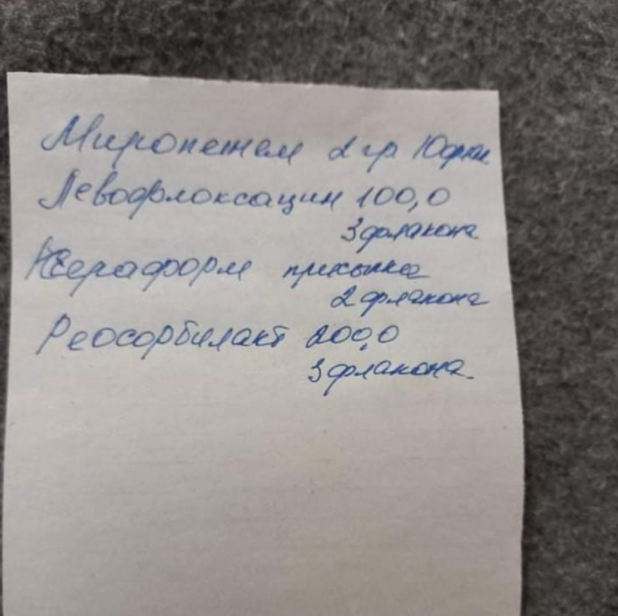 Миропенем 2 гр 10фл.
Левофлоксацин 100,0
3 флакона
Ксераформ присыпка
2 флакона
Реосорбилакт 200,0
3 флакона.